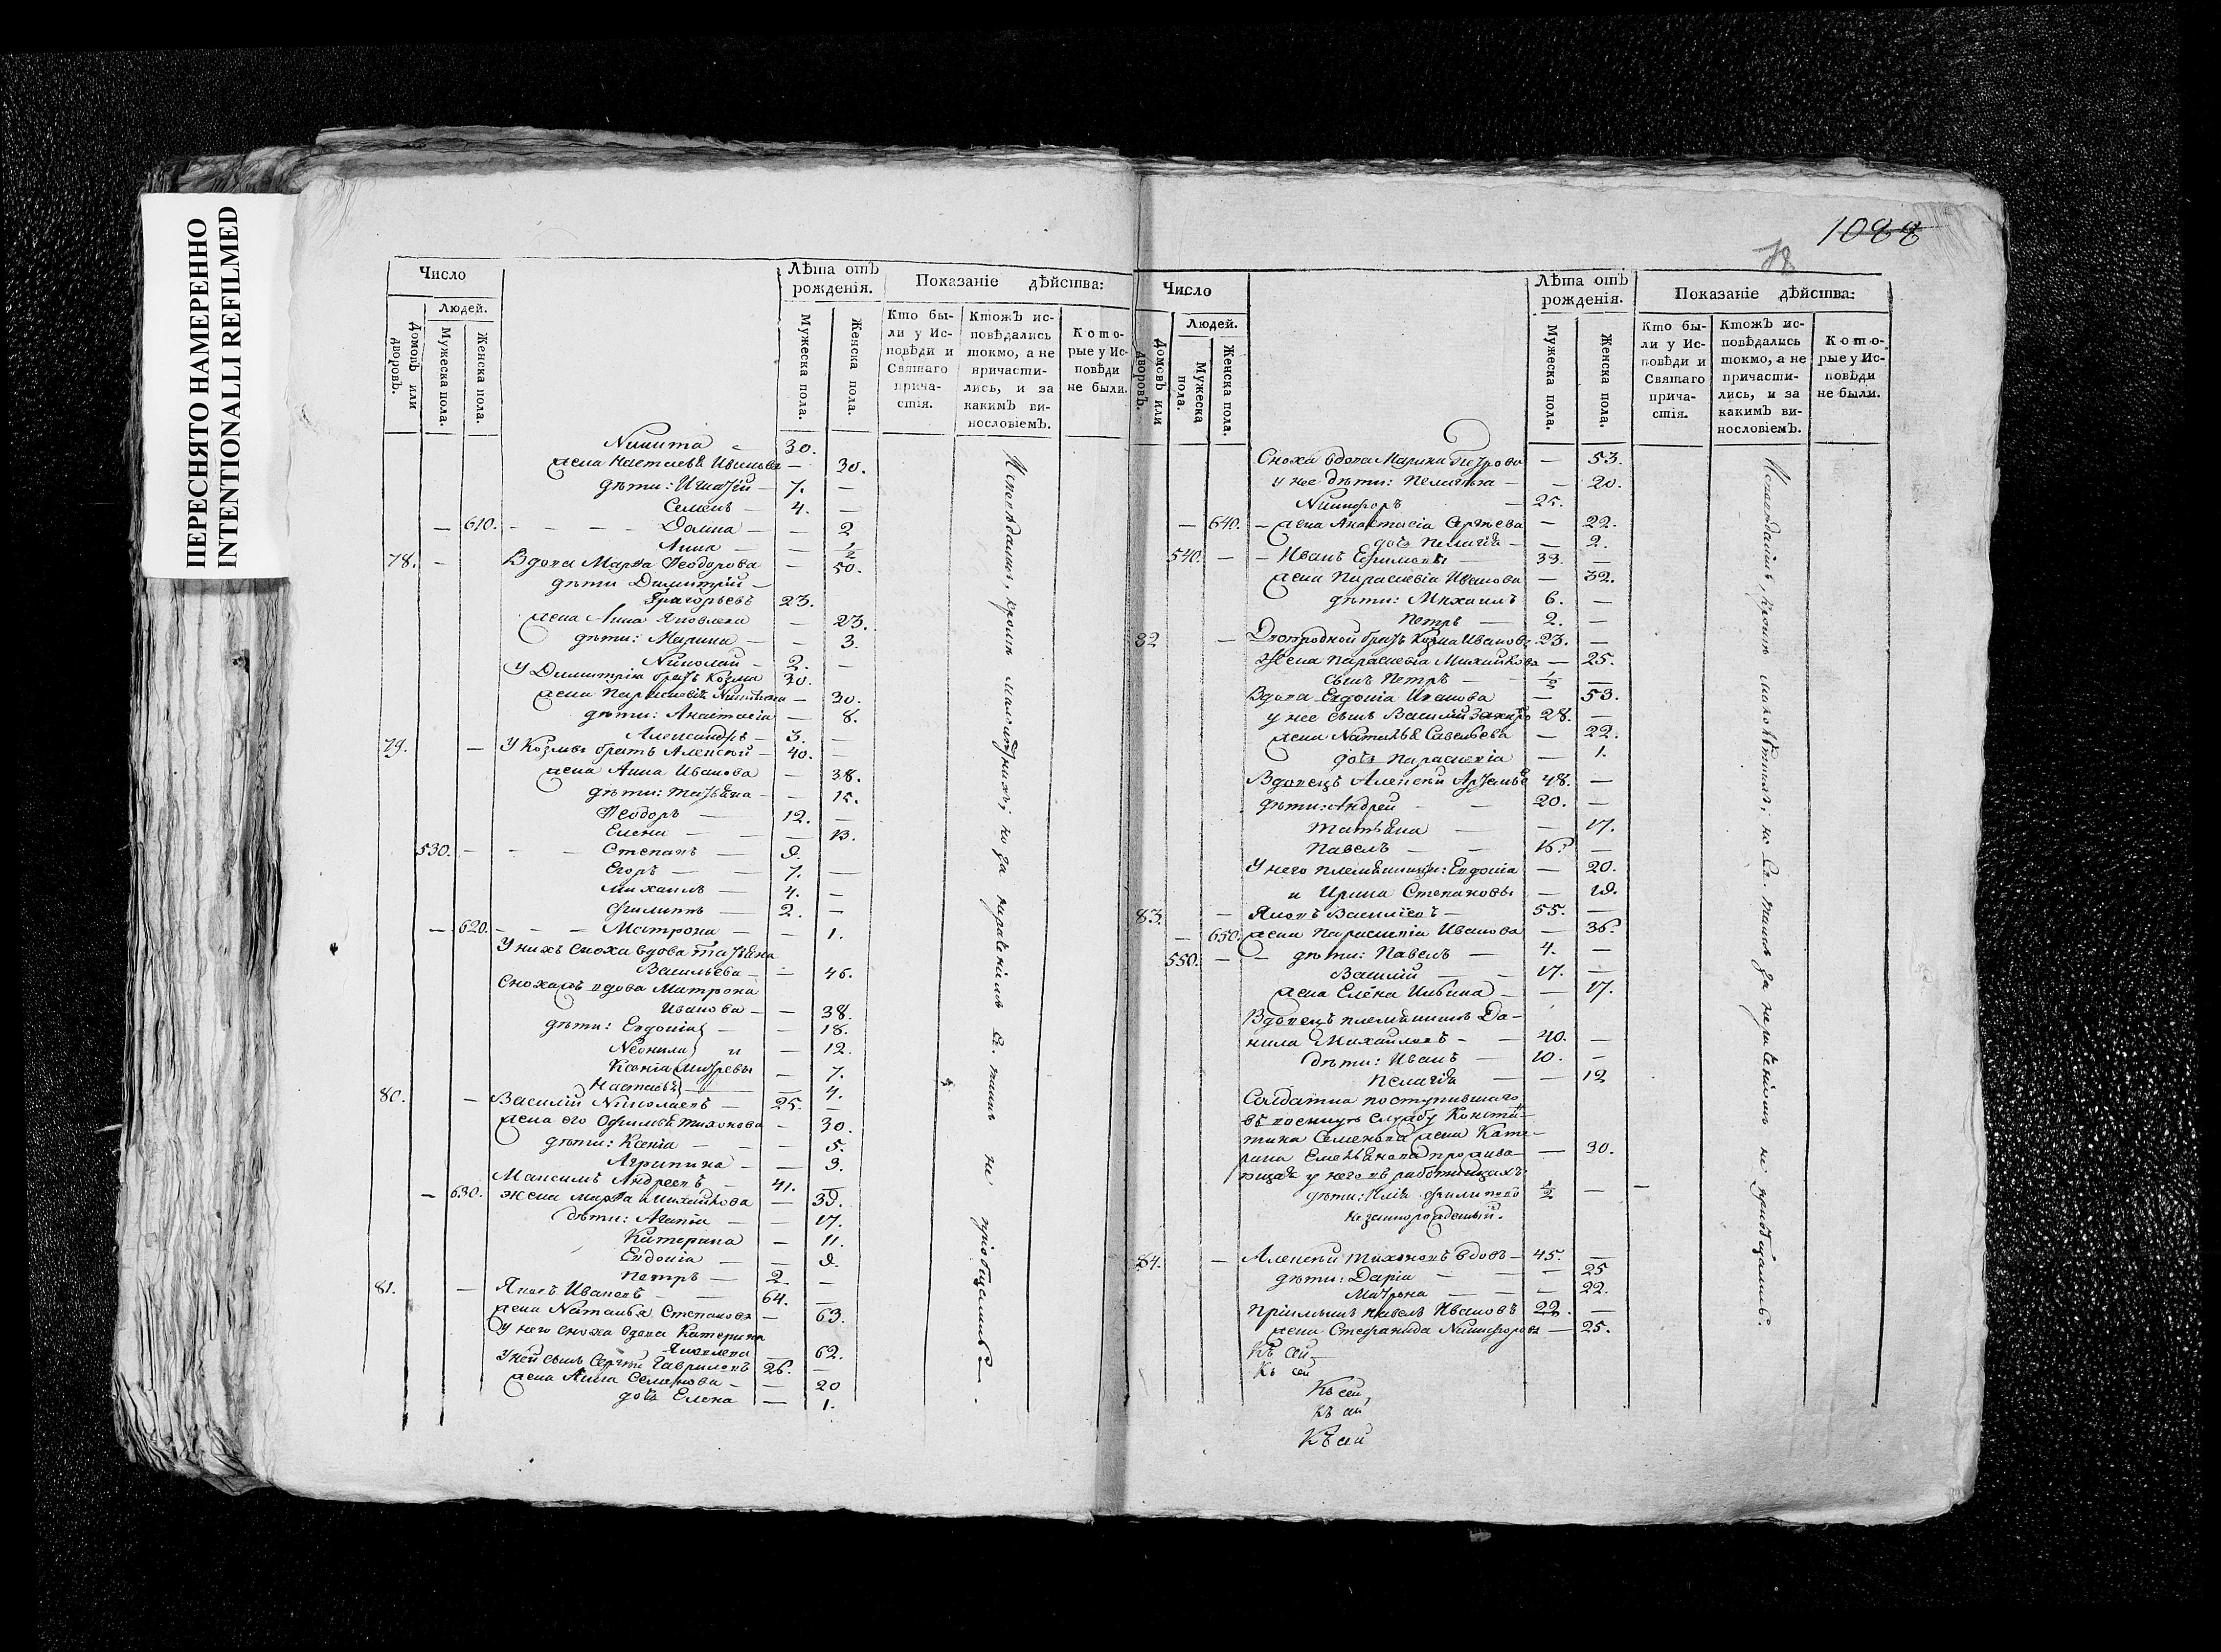 ПЕРЕСНЯТО НАМЕРЕННО
INTENTIONALLI REFILMED
Число
Людей.
Домовъ или дворовъ.
Мужеска пола.
Женска пола.
Лѣта отъ рожденія.
Мужеска пола.
Женска пола.
Показаніе дѣйства:
Кто были у Исповѣди и Святаго причастія.
Ктожъ исповѣдались токмо, а не причастились, и за какимъ винословіемъ.
Которые у Исповѣди не были.
Никита 30.
жена Наталья Иванова — 30.
дѣти: Игнатій — 7. —
Семенъ — 4. —
— 610. Домна — — 2
Анна — — ½
78. — Вдова Марѳа Ѳеодорова — 50.
дѣти Димитрій —
Григорьевъ 23.
жена Анна Яковлева — 23.
дѣти: Марина — — 3.
Николай — 2. —
У Димитрія братъ Козма 30.
жена Параскевія — 30.
дѣти: Анастасія — 8.
Александръ — 3. —
79. — У Козмы братъ Алексѣй — 40. —
жена Анна Иванова — 38.
дѣти: Татьяна — — 15.
Ѳеодоръ — 12. —
Елена — — 13.
530. — Степанъ — 9.
Егоръ — 7. —
Михаилъ — 4. —
Филиппъ — 2. —
— 620. — Матрона — — 1.
У нихъ сноха вдова Татьяна
Васильева — — 46.
Снохажъ вдова Матрона
Иванова — — 38.
дѣти: Евдокія — — 18.
Неонила и — 12.
Ксенія — 7.
— 4.
80. — Василій Николаевъ — 25. —
жена его Тихонова — 30.
дѣти: Ксенія — — 5.
Агрипина — — 3.
Максимъ Андреевъ — 41. —
— 630. жена Марѳа Михайлова — 39.
дѣти: Агапія — — 17.
Катерина — 11.
Евдокія — — 9.
Петръ — 2. —
81. — Яковъ Ивановъ — 64. —
жена Наталья Степанова — 63.
У него сноха вдова Катерина
Яковлева — 62.
У ней сынъ Сергѣй Гавриловъ 26. —
жена Анна Семенова — — 20
дочь Елена — 1.
Исповѣдались, кромѣ малолѣтнихъ; но за нераченіемъ Св. таинъ не пріобщались.
1088
78
Число
Людей.
Домовъ или дворовъ.
Мужеска пола.
Женска пола.
Лѣта отъ рожденія.
Мужеска пола.
Женска пола.
Показаніе дѣйства:
Кто были у Исповѣди и Святаго причастія.
Ктожъ исповѣдались токмо, а не причастились, и за какимъ винословіемъ.
Которые у Исповѣди не были.
Сноха вдова Марина Петрова — 53.
у нее дѣти: Пелагія — — 20.
Никифоръ — 25.
— 640. — жена Анастасія Сергѣева — 22.
дочь Пелагія — — 2.
540. — — Иванъ Ефимовъ — 33. —
жена Параскевія Иванова — 32.
дѣти: Михаилъ 6. —
Петръ — 2. —
82 — Двоюродной братъ Козма Ивановъ 23. —
Жена Параскевія Михайлова — 25.
сынъ Петръ — ½ —
Вдова Евдокія Иванова — 53.
у нее сынъ Василій 28. —
жена Наталья Савельева — 22.
дочь Параскевія — 1.
Вдовецъ Алексѣй 48. —
дѣти: Андрей — 20. —
Татьяна — — 17.
Павелъ — 16. —
У него племянницы: Евдокія — 20.
и Ирина Степановы — 19.
83. — Яковъ Васильевъ — 55. —
— 650. жена Параскевія Иванова — 36.
550. — — дѣти: Павелъ — 4. —
Василій — 17. —
жена Елена Ильина — — 17.
Вдовецъ племянникъ Да-
нила Михайловъ — 40. —
дѣти: Иванъ — 10. —
Пелагія — — 12
Солдатка поступившаго
въ военную службу Констан-
тина Семенова жена Кате-
рина Емельянова прожива- — 30.
ющая у него въ работницахъ:
дѣти: Илія Филиповъ ½ —
незаконорожденный.
84. — Алексѣй Тихоновъ вдовъ — 45. —
дѣти: Дарія — — 25
Матрона — — 22.
Пріимышъ Павелъ Ивановъ 22. —
жена Стефанида Никифорова — 25.
Къ сей
Къ сей
Къ сей
Къ сей
Къ сей
Исповѣдались, кромѣ малолѣтнихъ; но Св. таинъ за нераченіемъ не пріобщались.